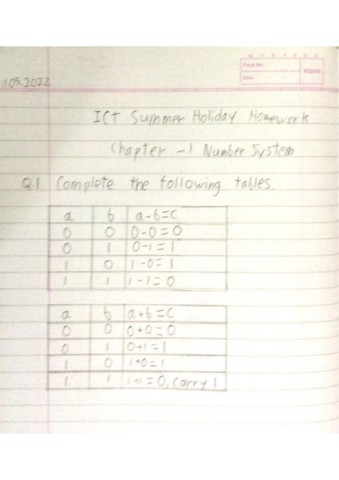 Page No.:
Date:
YOUVA
.03.2022
ICT Summer Holiday Homework
Chapter -1 Number System
Q1 Complete the following tables.
a b a-b=c
0 0 0-0=0
0 1 0-1=1
1 0 1-0=1
1 1 1-1=0
a b a+b=c
0 0 0+0=0
0 1 0+1=1
1 0 1+0=1
1 1 1+1=0, carry 1